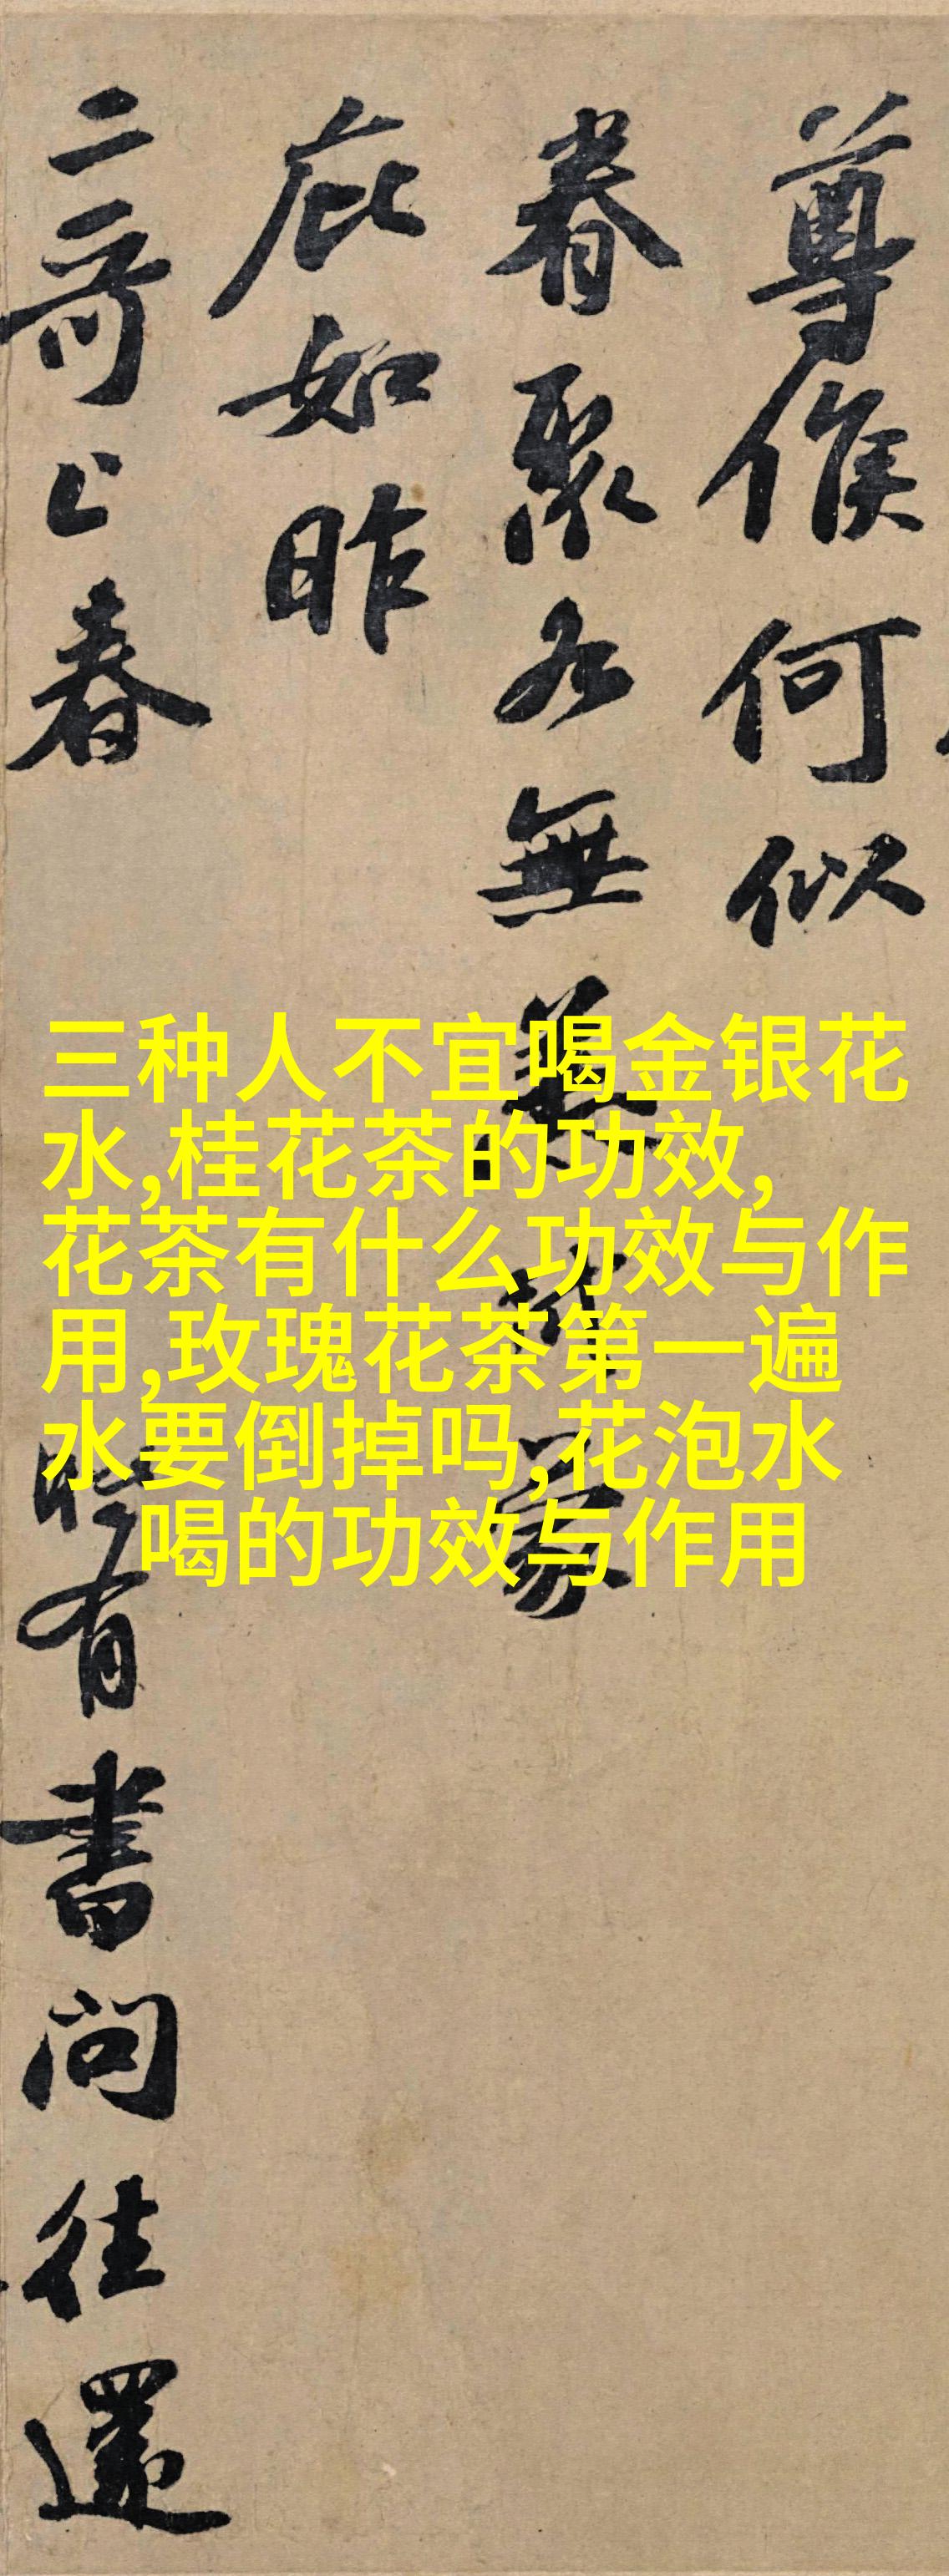 尊候何似
眷聚各無恙
蒙
庇如昨
二哥上春
時有書問往還
三种人不宜喝金银花
水,桂花茶的功效,
花茶有什么功效与作
用,玫瑰花茶第一遍
水要倒掉吗,花泡水
喝的功效与作用